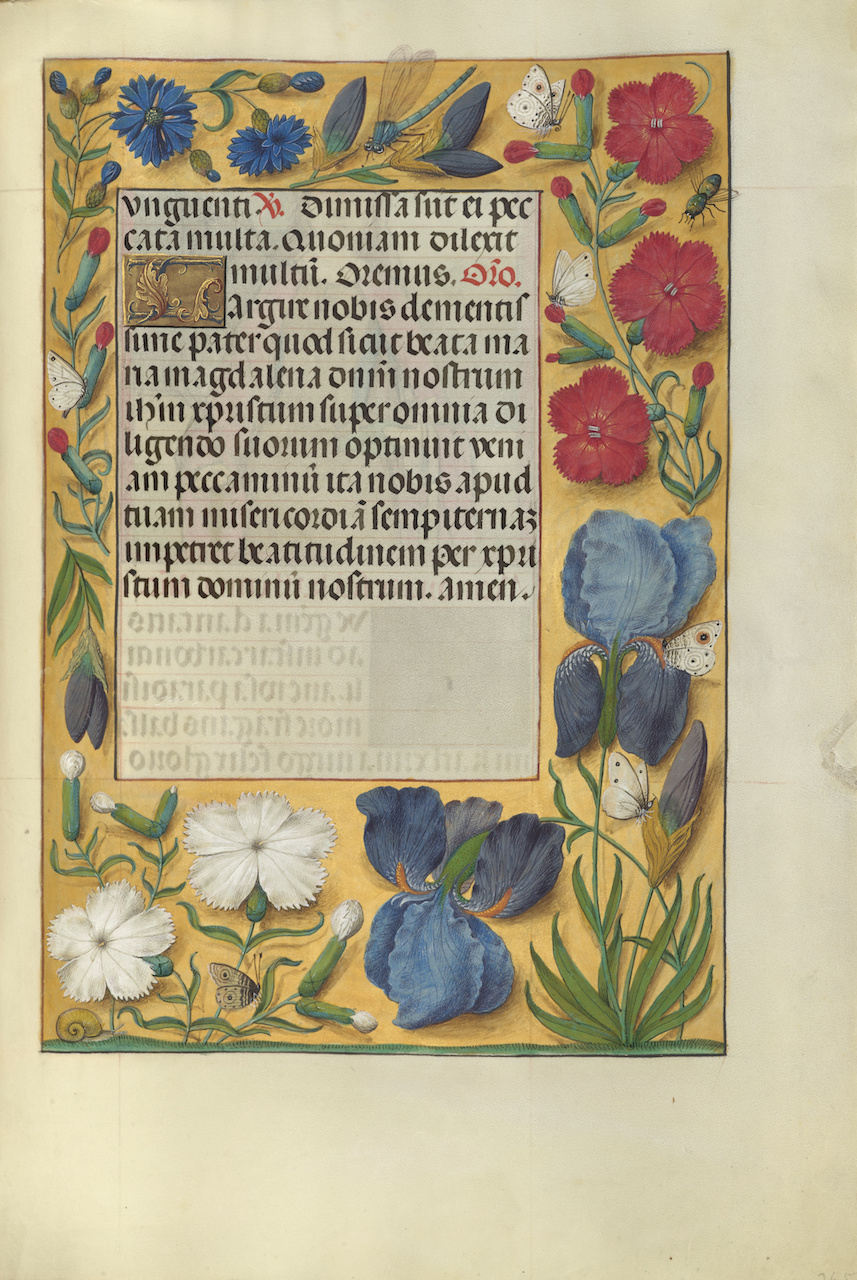 vnguenti. V. Dimissa sūt ei pec
cata multa. Quoniam dilexit
multū. Oremus. Orō.
Largire nobis clementis
sime pater quod sicut beata ma
ria magdalena dn̄m nostrum
ih̄m xpristum super omnia di
ligendo suorum optinuit veni
am peccaminū ita nobis apud
tuam misericordiā sempiternaꝫ
impetret beatitudinem per xpri
stum dominū nostrum. Amen.